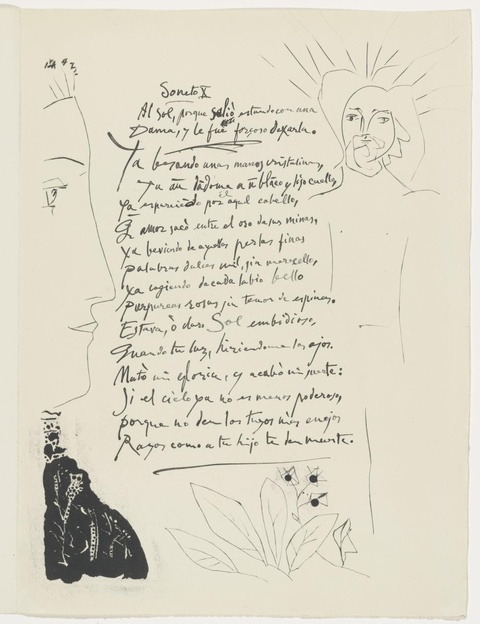 Soneto X
Al Sol, porque salió estando con una
Dama, y le fué forçoso dexarla.
Ya besando unas manos cristalinas,
ya an un blāco y liso cuello,
ya esparciendo por el aquel cabello,
Q̃ amor sacó entre el oro de sus minas,
ya beviendo de aquellas perlas finas
palabras dulces mil, sin merecello,
ya cogiendo de cada labio bello
purpureas rosas sin temor de espinas.
Estava, ò claro Sol embidioso,
Quando tu luz, hiriendome los ojos.
Matò mi gloria, y acabò mi suerte:
Si el cielo ya no es menos poderoso,
porque no den los tuyos más enojos
Rayos como a tu hijo te den muerte.